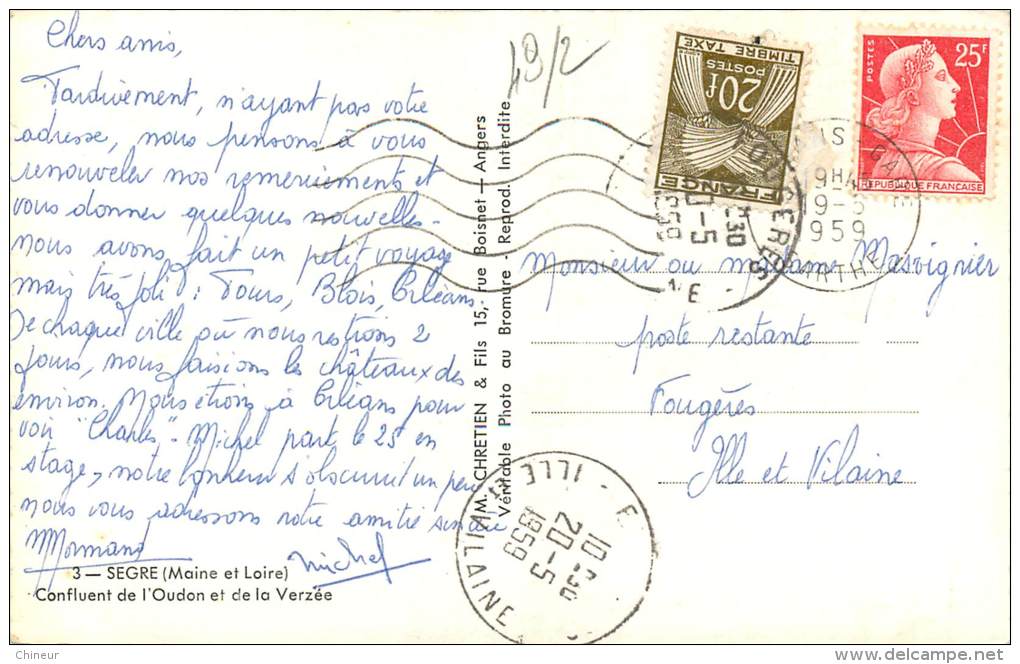 Chers amis,
Tardivement, n'ayant pas votre
adresse, nous pensons à vous
renouveler nos remerciements et
vous donner quelques nouvelles.
nous avons fait un petit voyage
mais très joli : Tours, Blois, Orléans.
De chaque ville où nous restions 2
jours, nous faisions les châteaux des
environ. Nous étions à Orléans pour
voir "Charles". Michel part le 25 en
stage, notre bonheur s'obscurcit un peu
nous vous adressons notre amitié sincère
MMormand
Michel
3 — SEGRE (Maine et Loire)
Confluent de l'Oudon et de la Verzée
MM. CHRETIEN & Fils 15, rue Boisnet — Angers
Véritable Photo au Bromure - Reprod. Interdite
49/2
TIMBRE TAXE
POSTES
20f
FRANCE
POSTES
25F
REPUBLIQUE FRANÇAISE
19-5
1959
30
-5
1959
Monsieur ou madame Masvignier
poste restante
Fougères
Ille et Vilaine
ILLE
VILAINE
10 30
20-5
1959
Chineur
delcampe.net